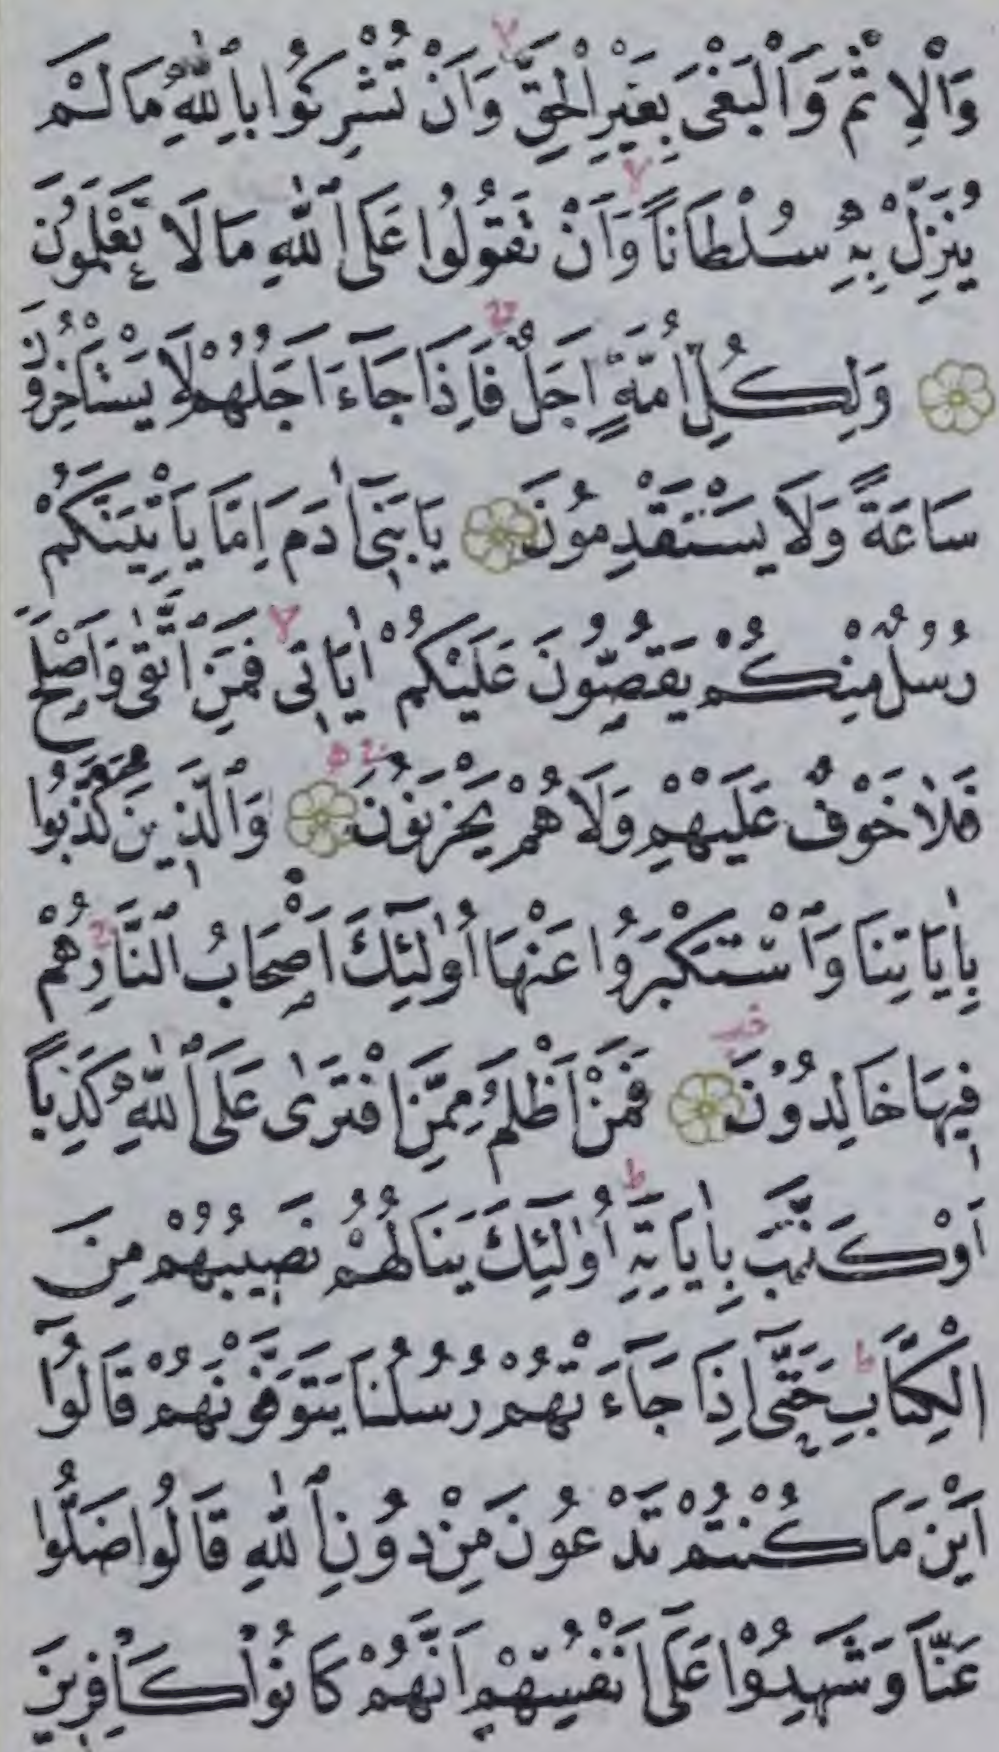 وَالْاِثْمَ وَالْبَغْىَ بِغَيْرِ الْحَقِّ وَاَنْ تُشْرِكُوا بِاللّٰهِ مَا لَمْ
يُنَزِّلْ بِهٖ سُلْطَانًا وَاَنْ تَقُولُوا عَلَى اللّٰهِ مَا لَا تَعْلَمُونَ
وَلِكُلِّ اُمَّةٍ اَجَلٌ فَاِذَا جَآءَ اَجَلُهُمْ لَا يَسْتَاْخِرُونَ
سَاعَةً وَلَا يَسْتَقْدِمُونَ يَا بَنِىٓ اٰدَمَ اِمَّا يَاْتِيَنَّكُمْ
رُسُلٌ مِنْكُمْ يَقُصُّونَ عَلَيْكُمْ اٰيَاتِى فَمَنِ اتَّقٰى وَاَصْلَحَ
فَلَا خَوْفٌ عَلَيْهِمْ وَلَا هُمْ يَحْزَنُونَ وَالَّذِينَ كَذَّبُوا
بِاٰيَاتِنَا وَاسْتَكْبَرُوا عَنْهَٓا اُولٰٓئِكَ اَصْحَابُ النَّارِ هُمْ
فِيهَا خَالِدُونَ فَمَنْ اَظْلَمُ مِمَّنِ افْتَرٰى عَلَى اللّٰهِ كَذِبًا
اَوْ كَذَّبَ بِاٰيَاتِهٖ اُولٰٓئِكَ يَنَالُهُمْ نَصِيبُهُمْ مِنَ
الْكِتَابِ حَتّٰىٓ اِذَا جَآءَتْهُمْ رُسُلُنَا يَتَوَفَّوْنَهُمْ قَالُٓوا
اَيْنَ مَا كُنْتُمْ تَدْعُونَ مِنْ دُونِ اللّٰهِ قَالُوا ضَلُّوا
عَنَّا وَشَهِدُوا عَلٰٓى اَنْفُسِهِمْ اَنَّهُمْ كَانُوا كَافِرِينَ